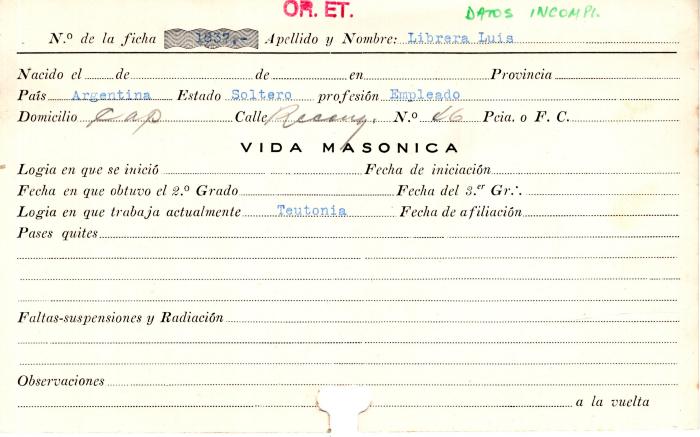 OR. ET.
DATOS INCOMPL.
N.º de la ficha 1837.- Apellido y Nombre: Librera Luis
Nacido el de de en Provincia
País Argentina Estado Soltero profesión Empleado
Domicilio Cap Calle Recong. N.º 46 Pcia. o F. C.
VIDA MASONICA
Logia en que se inició Fecha de iniciación
Fecha en que obtuvo el 2.º Grado Fecha del 3.er Gr∴
Logia en que trabaja actualmente Teutonia Fecha de afiliación
Pases quites
Faltas-suspensiones y Radiación
Observaciones
a la vuelta